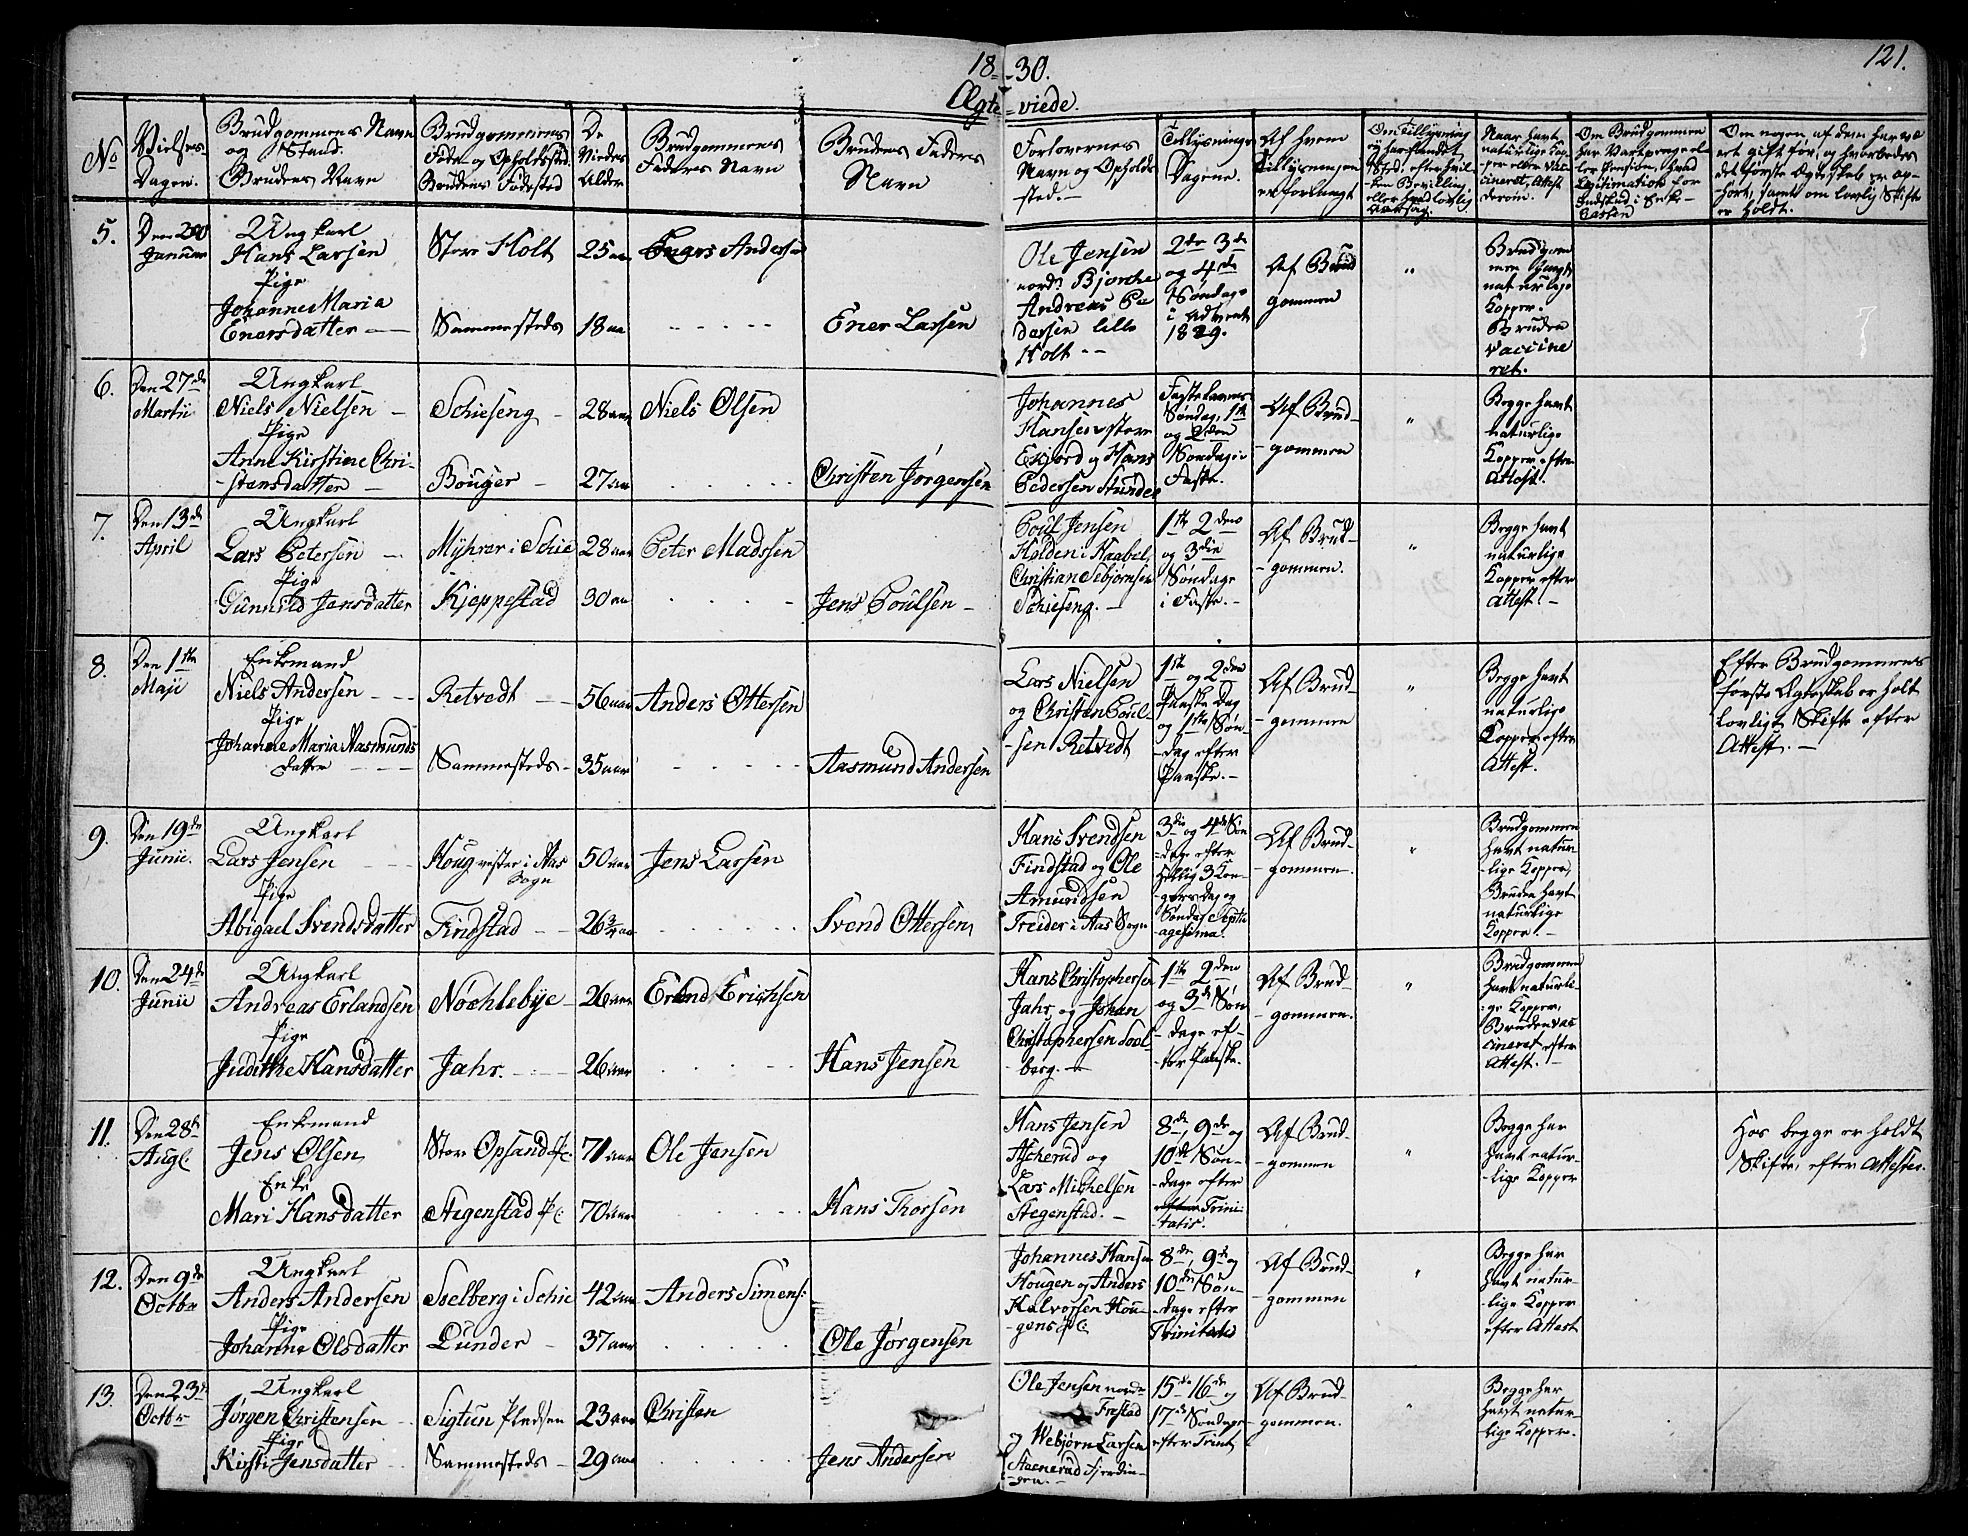 18-30.
121.
Ægte-viede.
No
Vielses-
Dagen.
Brudgommens Navn
og Stand.
Brudens Navn
Brudgommens
Føde og Opholdssted.
Brudens Fødested
De
Viedes
Alder
Brudgommens
Faders Navn
Brudens Faders
Navn
Forlovernes
Navn og Opholds
sted.-
Tillysnings
Dagene.
Af hvem
Tillysningen
er forlangt
Om Tillysning
ej har fundet
Sted, efter hvil-
ken Bevilling,
eller hvad lovlig
Aarsag.
Naar havt
naturlige Kop-
per eller vac-
cineret, Attest
derom.
Om Brudgommen
har Vartpenge el-
ler Pension, hvad
Legitimation for
Indskud i Enke-
Cassen
Om nogen af dem har væ-
ret gift før, og hvorledes
det første Ægteskab er op-
hørt, samt om lovlig Skifte
er holdt.
5.
Den 20
Januar
Ungkarl
Hans Larsen
Pige
Johanne Maria
Enersdatter
Store Holt
Sammesteds
25 aar
18 aar
Lars Andersen
Ener Larsen
Ole Jensen
nordr Bjerke
Andreas Pe
dersen lille
Holt --
2de 3de
og 4de
Søndage
i Advent
1829.
Af Brud
gommen
"
Brudgom
men havt
naturlige
Kopper.
Bruden
vaccine
ret.
6.
Den 27de
Martii
Ungkarl
Niels Nielsen
Pige
Anne Kirstine Chri-
-stensdatter
Schieseng
Bouger
28 aar
27 aar
Niels Olsen
Christen Jørgensen
Johannes
Hansen store
Ekjord og Hans
Pedersen Stunder
Fastelavns
Søndag, 1ste
og 2den
Søndag i
Faste.
Af Brud-
-gommen
"
Begge havt
naturlige
Kopper efter
Attest.
7.
Den 13de
April
Ungkarl
Lars Petersen
Pige
Gunnild Jensdatter
Myhrer i Schie
Kjeppestad
28 aar
30 aar
Peter Madssen
Jens Poulsen
Poul Jensen
Holden i Kaabel
Christian Sebjørnsen
Schieseng.
1ste 2den
og 3die
Søndage
i Faste.
Af Brud-
-gommen.
"
Begge havt
naturlige
Kopper efter
Attest.
8.
Den 1ste
Maji
Enkemand
Niels Andersen
Pige
Johanne Maria Aasmunds
datter
Retvedt
Sammesteds
56 aar
35 aar
Anders Ottersen
Aasmund Andersen
Lars Nielsen
og Christen Poul-
-sen Retvedt
1ste og 2den
Paaske Dag
og 1ste Søn-
-dag efter
Paaske.
Af Brud-
-gommen
"
Begge havt
naturlige
Kopper efter
Attest.
Efter Brudgommens
første Ægteskab er holt
lovligt Skifte efter
Attest.
9.
Den 19de
Junii.
Ungkarl
Lars Jensen
Pige
Abigael Svendsdatter
Houg vester i Aas
Sogn
Findstad
50 aar
26 3/4 aar
Jens Larsen
Svend Ottersen
Hans Svendsen
Findstad og Ole
Amundsen
Treider i Aas Sogn
3die og 4de Søn
-dage efter
Hellig 3 Kon-
gers Dag og
Søndag Septu
agesima.
Af Brud-
-gommen.
"
Brudgommen
havt natur
lige Kopper,
Bruden havt
naturlige
Kopper.
10.
Den 24de
Junii
Ungkarl
Andreas Erlandsen
Pige
Judithe Hansdatter
Nøchlebye
Jahr.
26 aar
26 aar
Erland Erichsen
Hans Jensen
Hans Christophersen
Jahr, og Johan
Christophersen Sool-
berg.
1ste 2den
og 3de Søn
-dage ef-
ter Paaske.
Af Brud-
-gommen.
"
Brudgommen
havt naturli-
ge Kopper,
Bruden vac
cineret efter
Attest.
11.
Den 28de
Augl.
Enkemand
Jens Olsen
Enke
Mari Hansdatter
Stor Opsand
Stegenstad
71 aar
70 aar
Ole Jensen
Hans Thorsen
Hans Jensen
Ascherud og
Lars Michelsen
Stegenstad.
8de, 9de og
10de Søn-
-dage efter
efter Trini-
tatis.
Af Brud-
-gommen
"
Begge har
havt natur-
-lige Kopper
Hos begge er holdt
Skifte, efter Attester.
12.
Den 9de
Octbr
Ungkarl
Anders Andersen
Pige
Johanne Olsdatter
Sselberg i Schie
Lunder
42 aar
37 aar
Anders Simens:
Ole Jørgensen
Johannes Hansen
Hougen og Anders
Halvorsen Hou-
-gens
8de, 9de og
10de Søn-
dage efter
Trinitatis
Af Brud-
-gommen
"
Begge har
havt natur-
lige Kopper
efter Attest
13.
Den 23de
Octbr
Ungkarl
Jørgen Christensen
Pige
Kirsti Jensdatter
Sigtun Pladsen
Sammesteds
23 aar
29 aar
Christen
Jens Andersen
Ole Jensen nordr
Frestad
og Webjørn Larsen
Stenerud Fjerdin-
-gen.
15de 16de og
17de Søndage
efter Trinit
Af Brud-
gommen.
"
Begge har
havt natur-
lige Kopper.